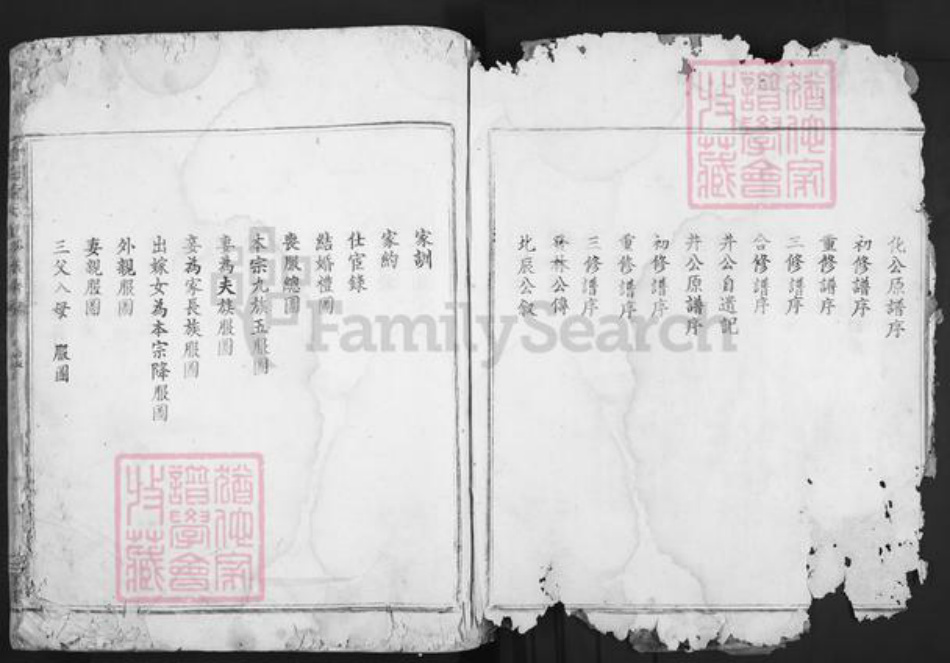 化公原譜序
初修譜序
重修譜序
三修譜序
合修譜序
井公自遺記
井公原譜序
初修譜序
重修譜序
三修譜序
林公傳
北辰公敘
家訓
家約
仕宦錄
結婚禮圖
喪服總圖
本宗九族五服圖
妻為夫族服圖
妾為家長族服圖
出嫁女為本宗降服圖
外親服圖
妻親服圖
三父八母 服圖
FamilySearch